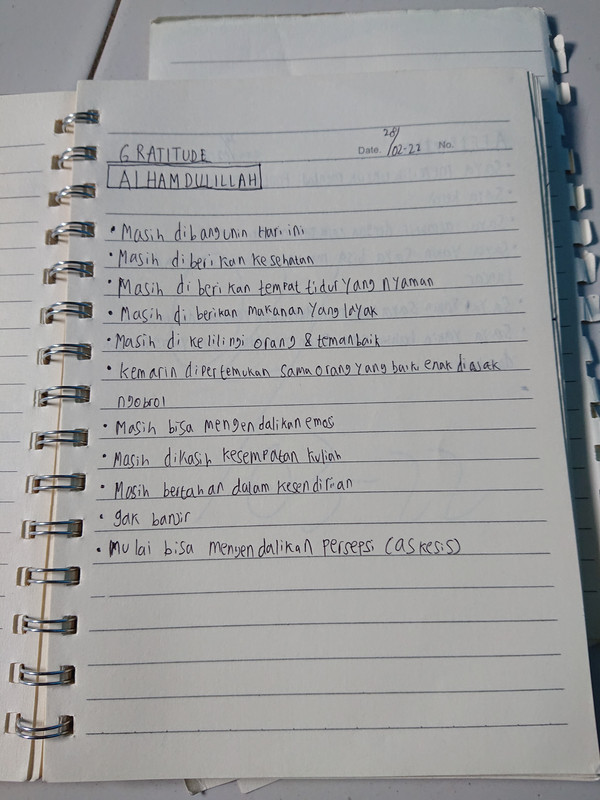 GRATITUDE
Date. 28/02-22 No.
ALHAMDULILLAH
• Masih dibangunin Hari ini
• Masih diberikan kesehatan
• Masih diberikan tempat tidur yang nyaman
• Masih di berikan makanan yang layak
• Masih di kelilingi orang & teman baik
• kemarin dipertemukan sama orang yang baik, enak diajak
ngobrol
• Masih bisa mengendalikan emosi
• Masih dikasih kesempatan kuliah
• Masih bertahan dalam kesendirian
• gak banjir
• mulai bisa mengendalikan persepsi (askesis)